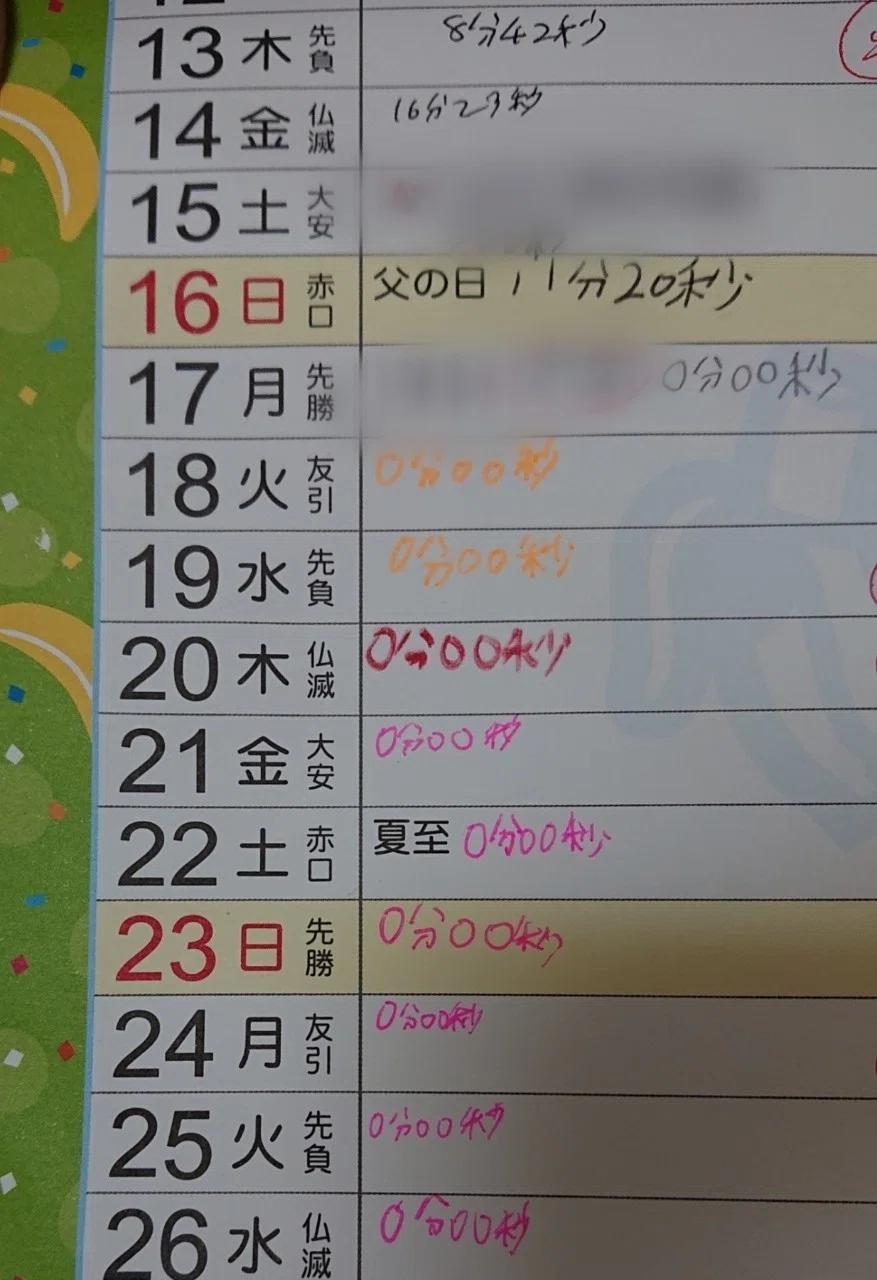 13 木 先負 8分42秒
14 金 仏滅 16分23秒
15 土 大安
16 日 赤口 父の日 11分20秒
17 月 先勝 0分00秒
18 火 友引 0分00秒
19 水 先負 0分00秒
20 木 仏滅 0分00秒
21 金 大安 0分00秒
22 土 赤口 夏至 0分00秒
23 日 先勝 0分00秒
24 月 友引 0分00秒
25 火 先負 0分00秒
26 水 仏滅 0分00秒